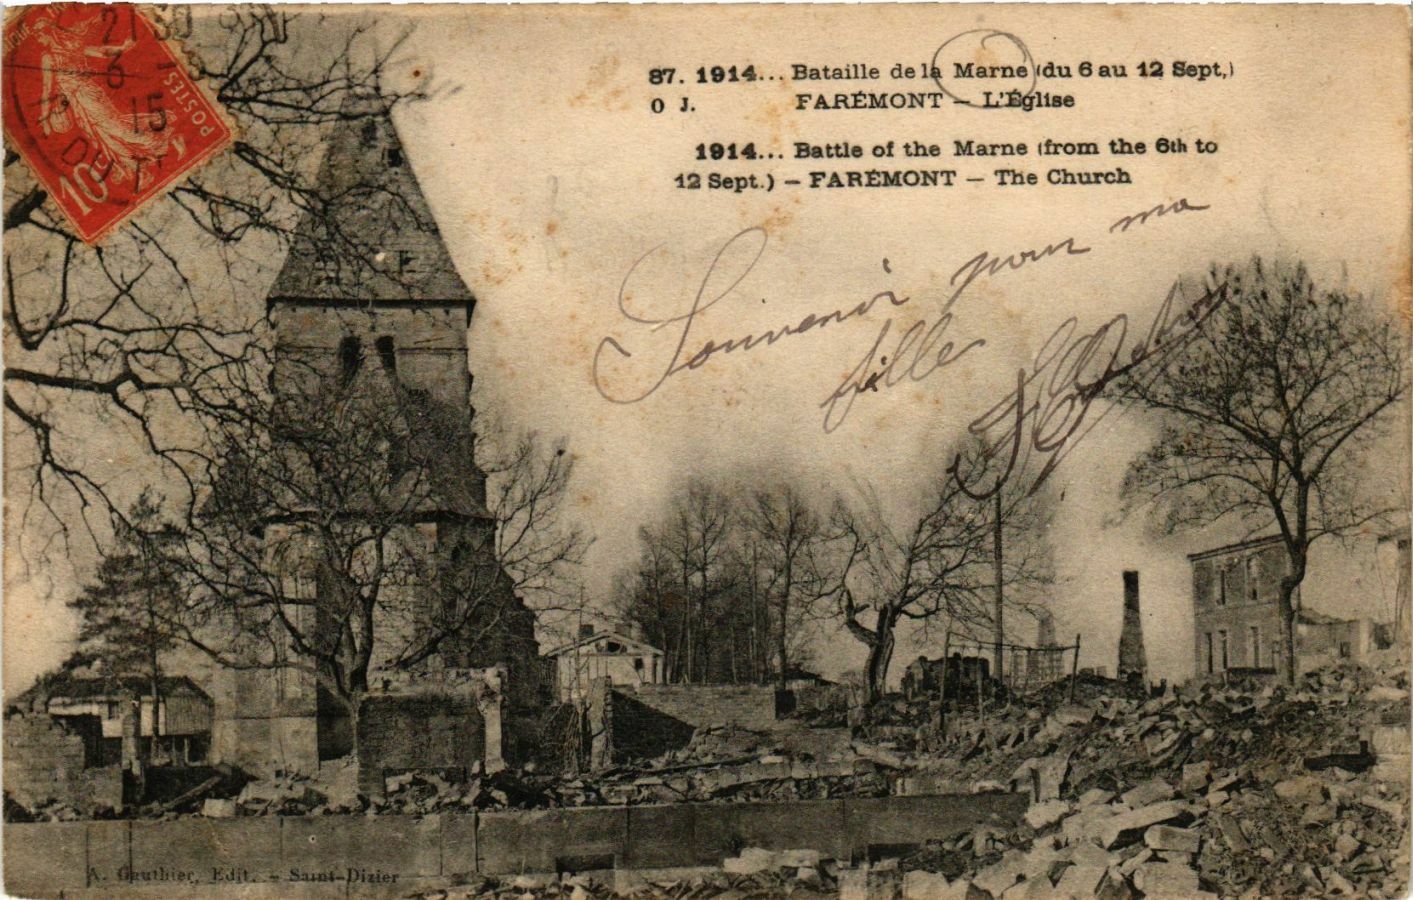 87. 1914... Bataille de la Marne (du 6 au 12 Sept.)
O J. FARÉMONT — L'Église
1914... Battle of the Marne (from the 6th to
12 Sept.) — FARÉMONT — The Church
Souvenir pour ma
fille
21 30
3
15
POSTES
10c
A. Gauthier, Edit. - Saint-Dizier